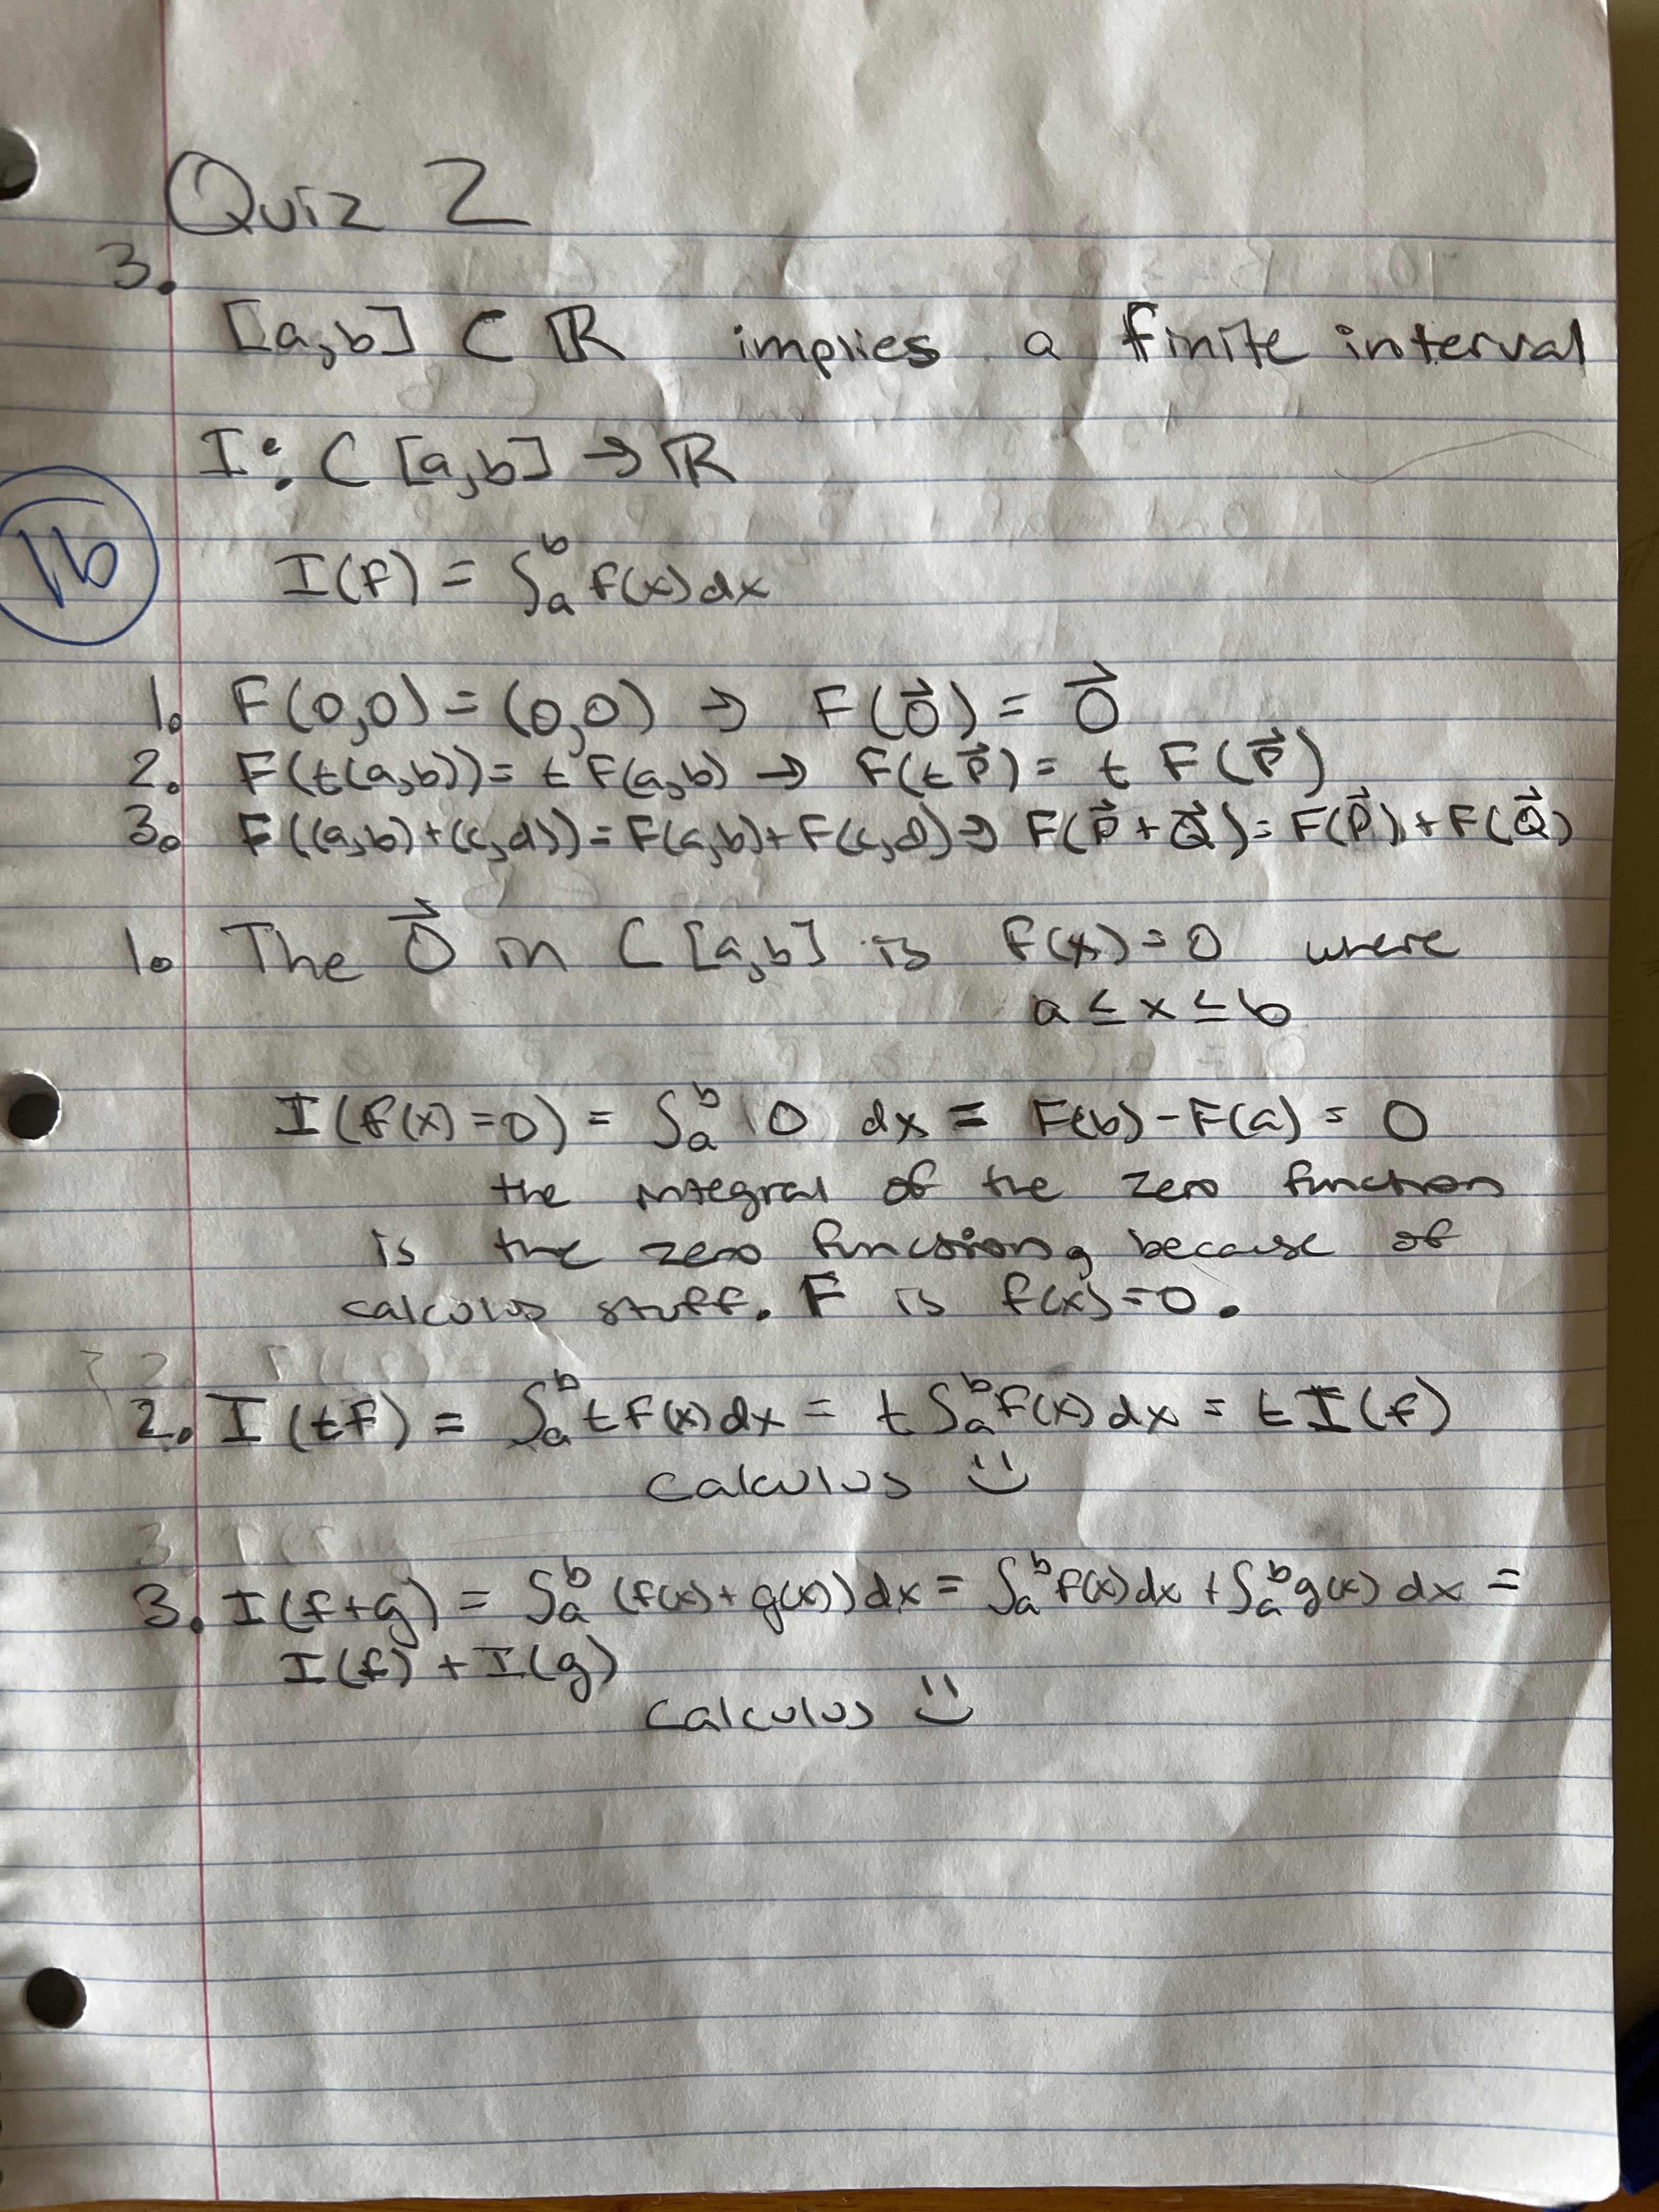 Quiz 2
3.
[a,b] ⊂ ℝ implies a finite interval
I: C [a,b] → ℝ
1b
I(f) = ∫ₐᵇ f(x) dx
1. F(0,0) = (0,0) → F(0⃗) = 0⃗
2. F(t(a,b)) = t F(a,b) → F(tP⃗) = t F(P⃗)
3. F((a,b)+(c,d)) = F(a,b)+F(c,d) → F(P⃗+Q⃗) = F(P⃗)+F(Q⃗)
1. The 0⃗ in C [a,b] is f(x)=0 where
a ≤ x ≤ b
I(f(x)=0) = ∫ₐᵇ 0 dx = F(b)-F(a) = 0
the integral of the zero function
is the zero function, because of
calculus stuff. F is f(x)=0.
2. I(tf) = ∫ₐᵇ tf(x)dx = t∫ₐᵇ f(x)dx = tI(f)
calculus ü
3. I(f+g) = ∫ₐᵇ (f(x)+g(x))dx = ∫ₐᵇ f(x)dx + ∫ₐᵇ g(x) dx =
I(f) + I(g)
calculus ü